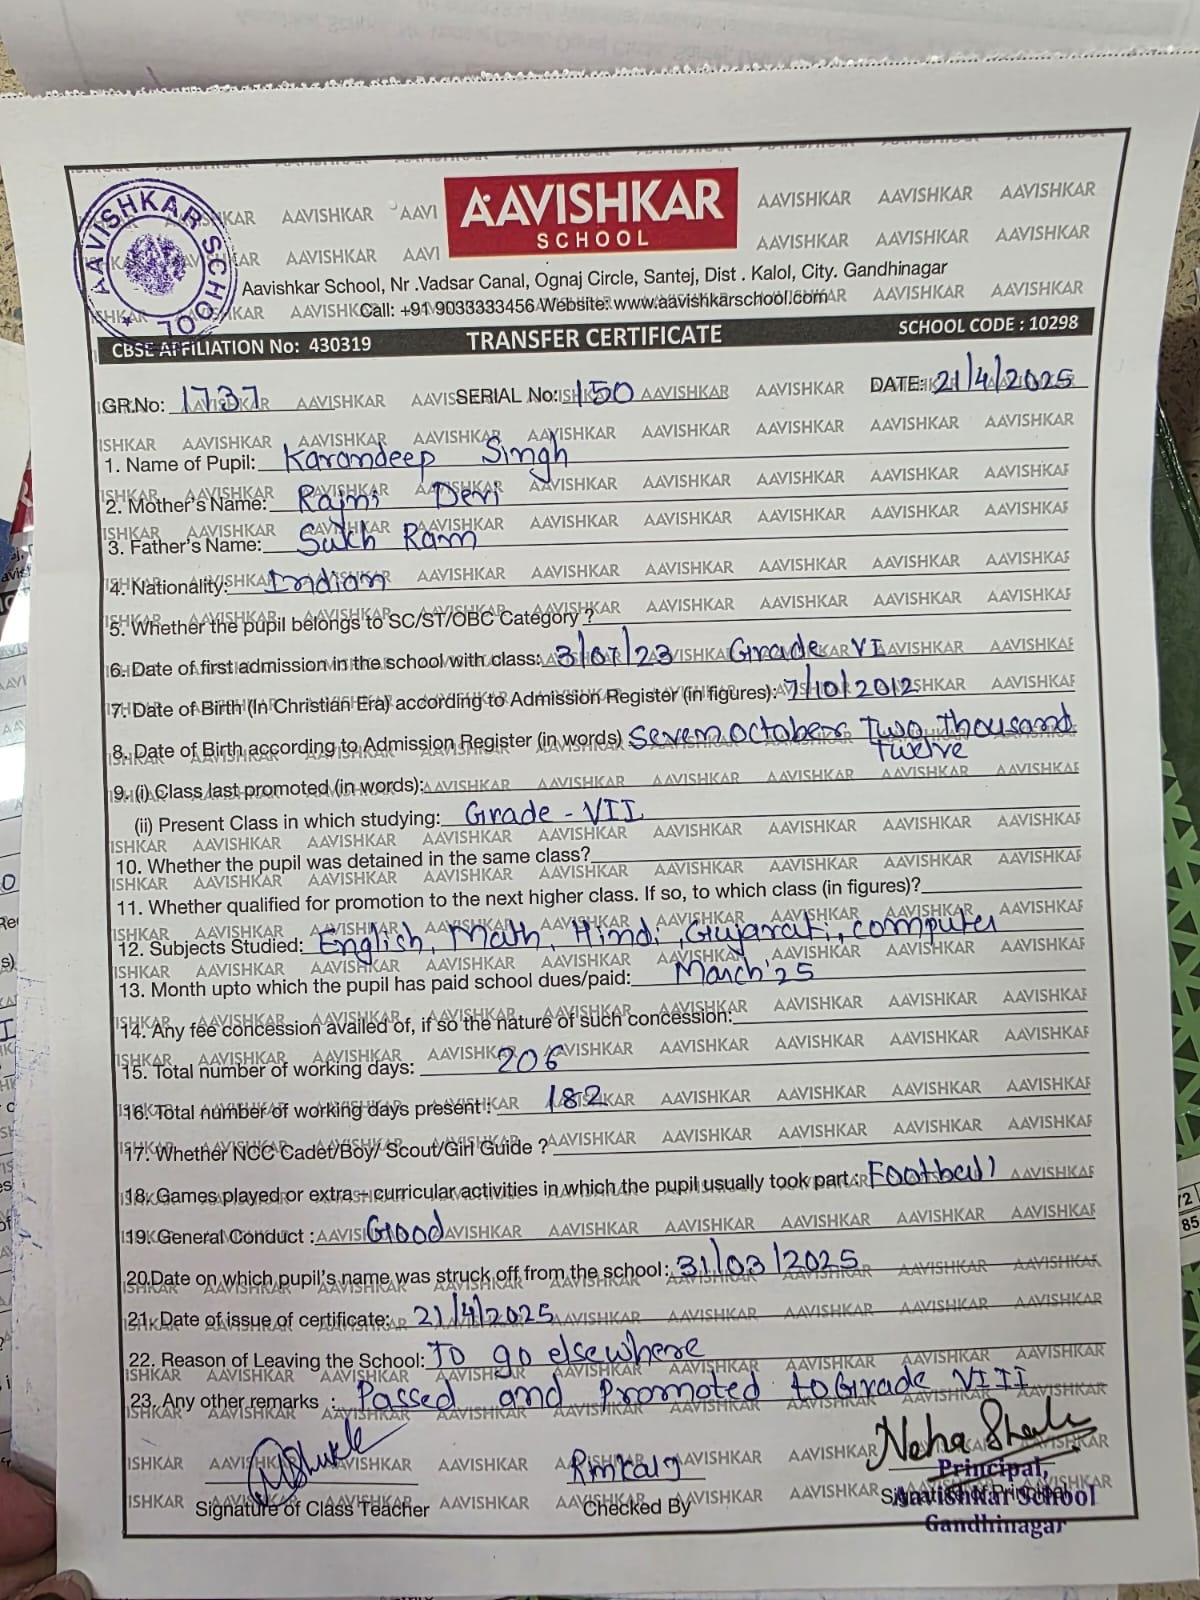 AAVISHKAR SCHOOL
AAVISHKAR
SCHOOL
Aavishkar School, Nr .Vadsar Canal, Ognaj Circle, Santej, Dist . Kalol, City. Gandhinagar
Call: +91 9033333456 Website: www.aavishkarschool.com
CBSE AFFILIATION No: 430319 TRANSFER CERTIFICATE SCHOOL CODE : 10298
GR.No: 1737 SERIAL No: 150 DATE: 21/4/2025
1. Name of Pupil: Karandeep Singh
2. Mother's Name: Rajni Devi
3. Father's Name: Sukh Ram
4. Nationality: Indian
5. Whether the pupil belongs to SC/ST/OBC Category ?
6. Date of first admission in the school with class: 3/07/23 Grade VI
7. Date of Birth (In Christian Era) according to Admission Register (in figures): 7/10/2012
8. Date of Birth according to Admission Register (in words) Seven October Two thousand
Twelve
9. (i) Class last promoted (in words):
(ii) Present Class in which studying: Grade - VII
10. Whether the pupil was detained in the same class?
11. Whether qualified for promotion to the next higher class. If so, to which class (in figures)?
12. Subjects Studied: English, Math, Hindi, Gujarati, computer
13. Month upto which the pupil has paid school dues/paid: March'25
14. Any fee concession availed of, if so the nature of such concession:
15. Total number of working days: 206
16. Total number of working days present : 182
17. Whether NCC Cadet/Boy/ Scout/Girl Guide ?
18. Games played or extra - curricular activities in which the pupil usually took part: Football
19. General Conduct : Good
20.Date on which pupil's name was struck off from the school: 31/03/2025
21. Date of issue of certificate: 21/4/2025
22. Reason of Leaving the School: To go elsewhere
23. Any other remarks : Passed and Promoted to Grade VIII
Neha
Signature of Class Teacher Checked By Signature of Principal
Principal,
Aavishkar School
Gandhinagar